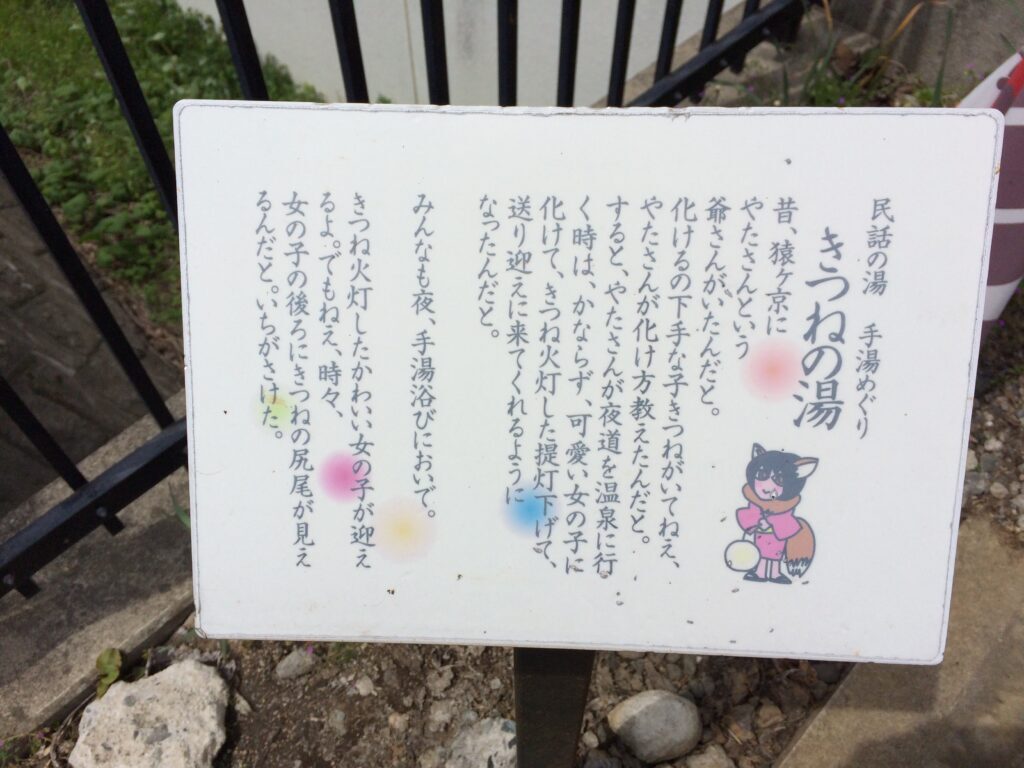 民話の湯　手湯めぐり
きつねの湯
昔、猿ヶ京に
やたさんという
爺さんがいたんだと。
化けるの下手な子きつねがいてねえ、
やたさんが化け方教えたんだと。
すると、やたさんが夜道を温泉に行
く時は、かならず、可愛い女の子に
化けて、きつね火灯した提灯下げて、
送り迎えに来てくれるように
なったんだと。
みんなも夜、手湯浴びにおいで。
きつね火灯したかわいい女の子が迎え
るよ。でもねえ、時々、
女の子の後ろにきつねの尻尾が見え
るんだと。いちがさけた。